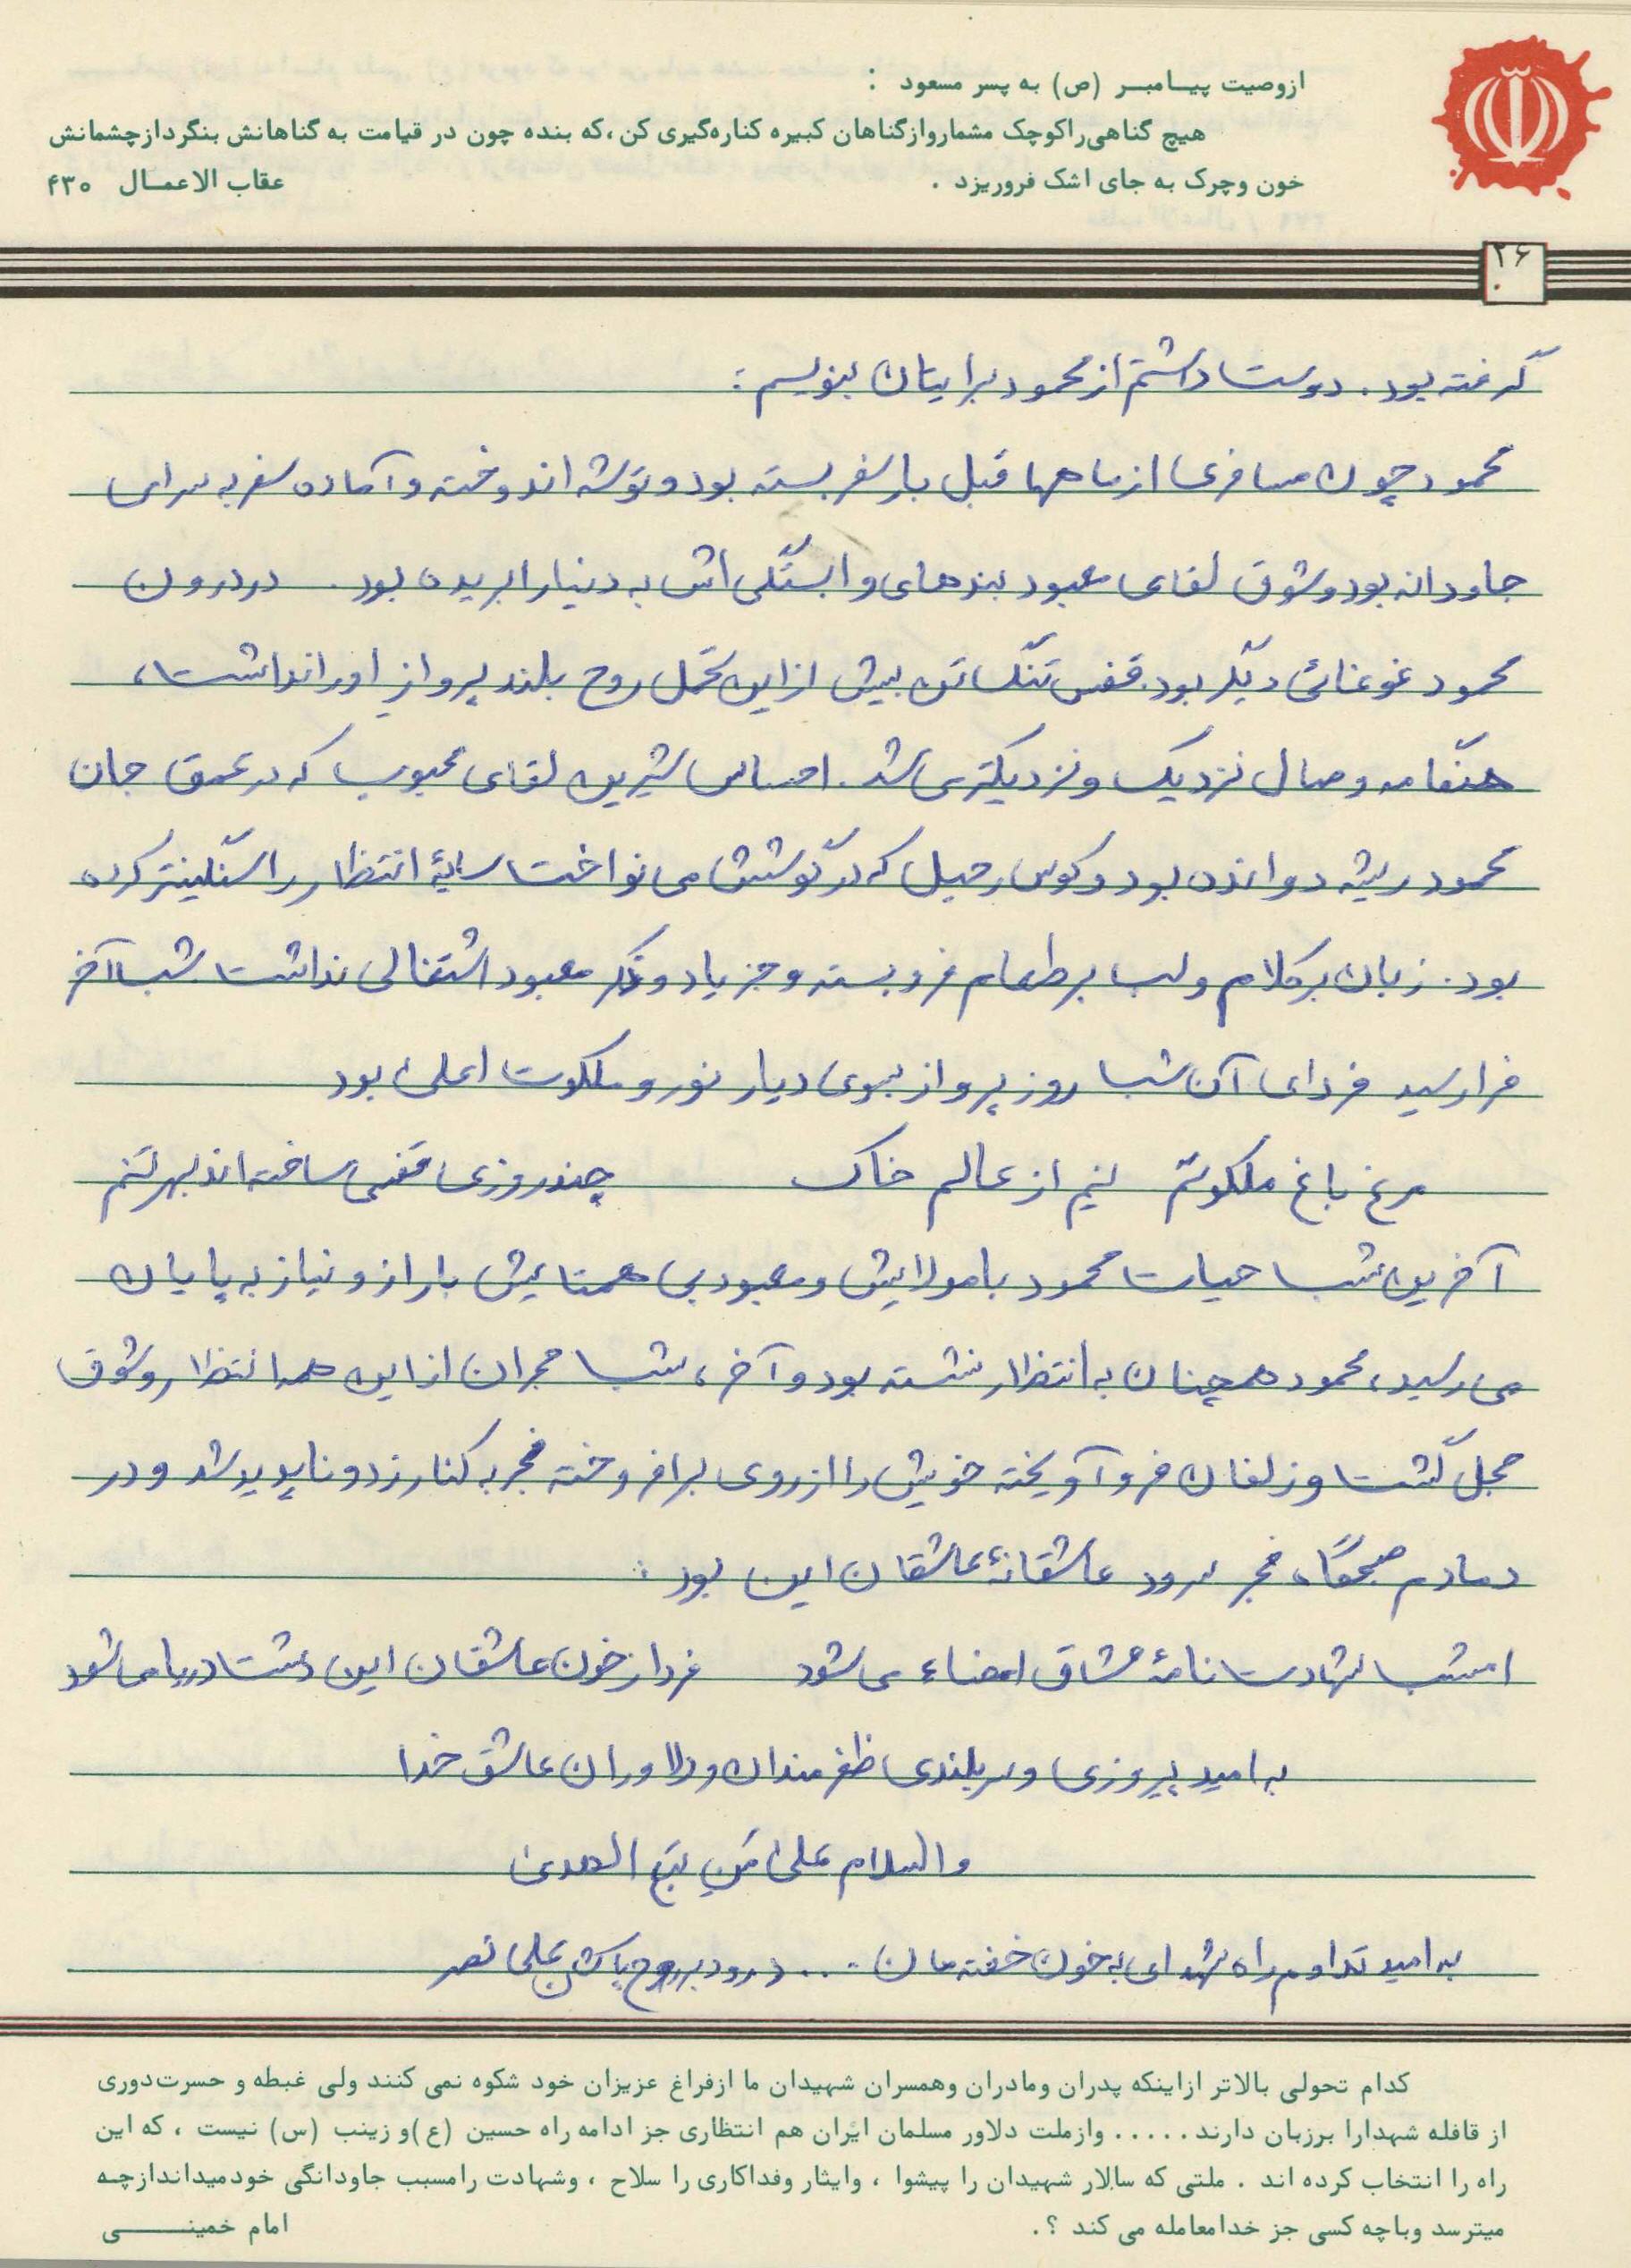 ازوصیت پیـامبـر (ص) به پسر مسعود :
هیچ گناهی راکوچک مشماروازگناهان کبیره کناره‌گیری کن ،که بنده چون در قیامت به گناهانش بنگردازچشمانش
خون وچرک به جای اشک فروریزد . عقاب الاعمـال ۴۳۰
۲۶
گرفته بود. دوست داشتم از محمود برایتان بنویسم:
محمود چون مسافری از ماهها قبل بار سفر بسته بود و توشه اندوخته و آماده سفر به سرای
جاودانه بود و شوق لقای معبود بندهای وابستگی اش به دنیا را بریده بود. در درون
محمود غوغائی دیگر بود. قفس تنگ تن بیش از این تحمل روح بلند پرواز او را نداشت،
هنگامه وصال نزدیک و نزدیکتر می شد. احساس شیرین لقای محبوب که در عمق جان
محمود ریشه دوانده بود و کوس رحیل که در گوشش می نواخت سایۀ انتظار را سنگینتر کرده
بود. زبان بر کلام و لب بر طعام فرو بسته و جز یاد و ذکر معبود اشتغالی نداشت شب آخر
فرا رسید فردای آن شب روز پرواز بسوی دیار نور و ملکوت اعلی بود
مرغ باغ ملکوتم نیم از عالم خاک چند روزی قفسی ساخته اند بهر تنم
آخرین شب حیات محمود با مولایش و معبود بی همتایش با راز و نیاز به پایان
می رسید، محمود همچنان به انتظار نشسته بود و آخر، شب هجران از این همه انتظار و شوق
خجل گشت و زلفان فرو آویخته خویش را از روی برافروخته فجر به کنار زد و ناپدید شد و در
دمادم صبحگاه فجر سرود عاشقانۀ عاشقان این بود:
امشب شهادت نامۀ عشاق امضاء می شود فردا ز خون عاشقان این دشت دریا می شود
به امید پیروزی و سربلندی ظفرمندان و دلاوران عاشق خدا
والسلام علی من تبع الهدی
به امید تداوم راه شهدای به خون خفته مان ... درود بر روح پاکش علی نصر
کدام تحولی بالاتر ازاینکه پدران ومادران وهمسران شهیدان ما ازفراغ عزیزان خود شکوه نمی کنند ولی غبطه و حسرت‌دوری
از قافله شهدارا برزبان دارند ..... وازملت دلاور مسلمان ایران هم انتظاری جز ادامه راه حسین (ع)و زینب (س) نیست ، که این
راه را انتخاب کرده اند . ملتی که سالار شهیدان را پیشوا ، وایثار وفداکاری را سلاح ، وشهادت رامسبب جاودانگی خودمیداندازچـه
میترسد وباچه کسی جز خدامعامله می کند ؟. امام خمینـــی